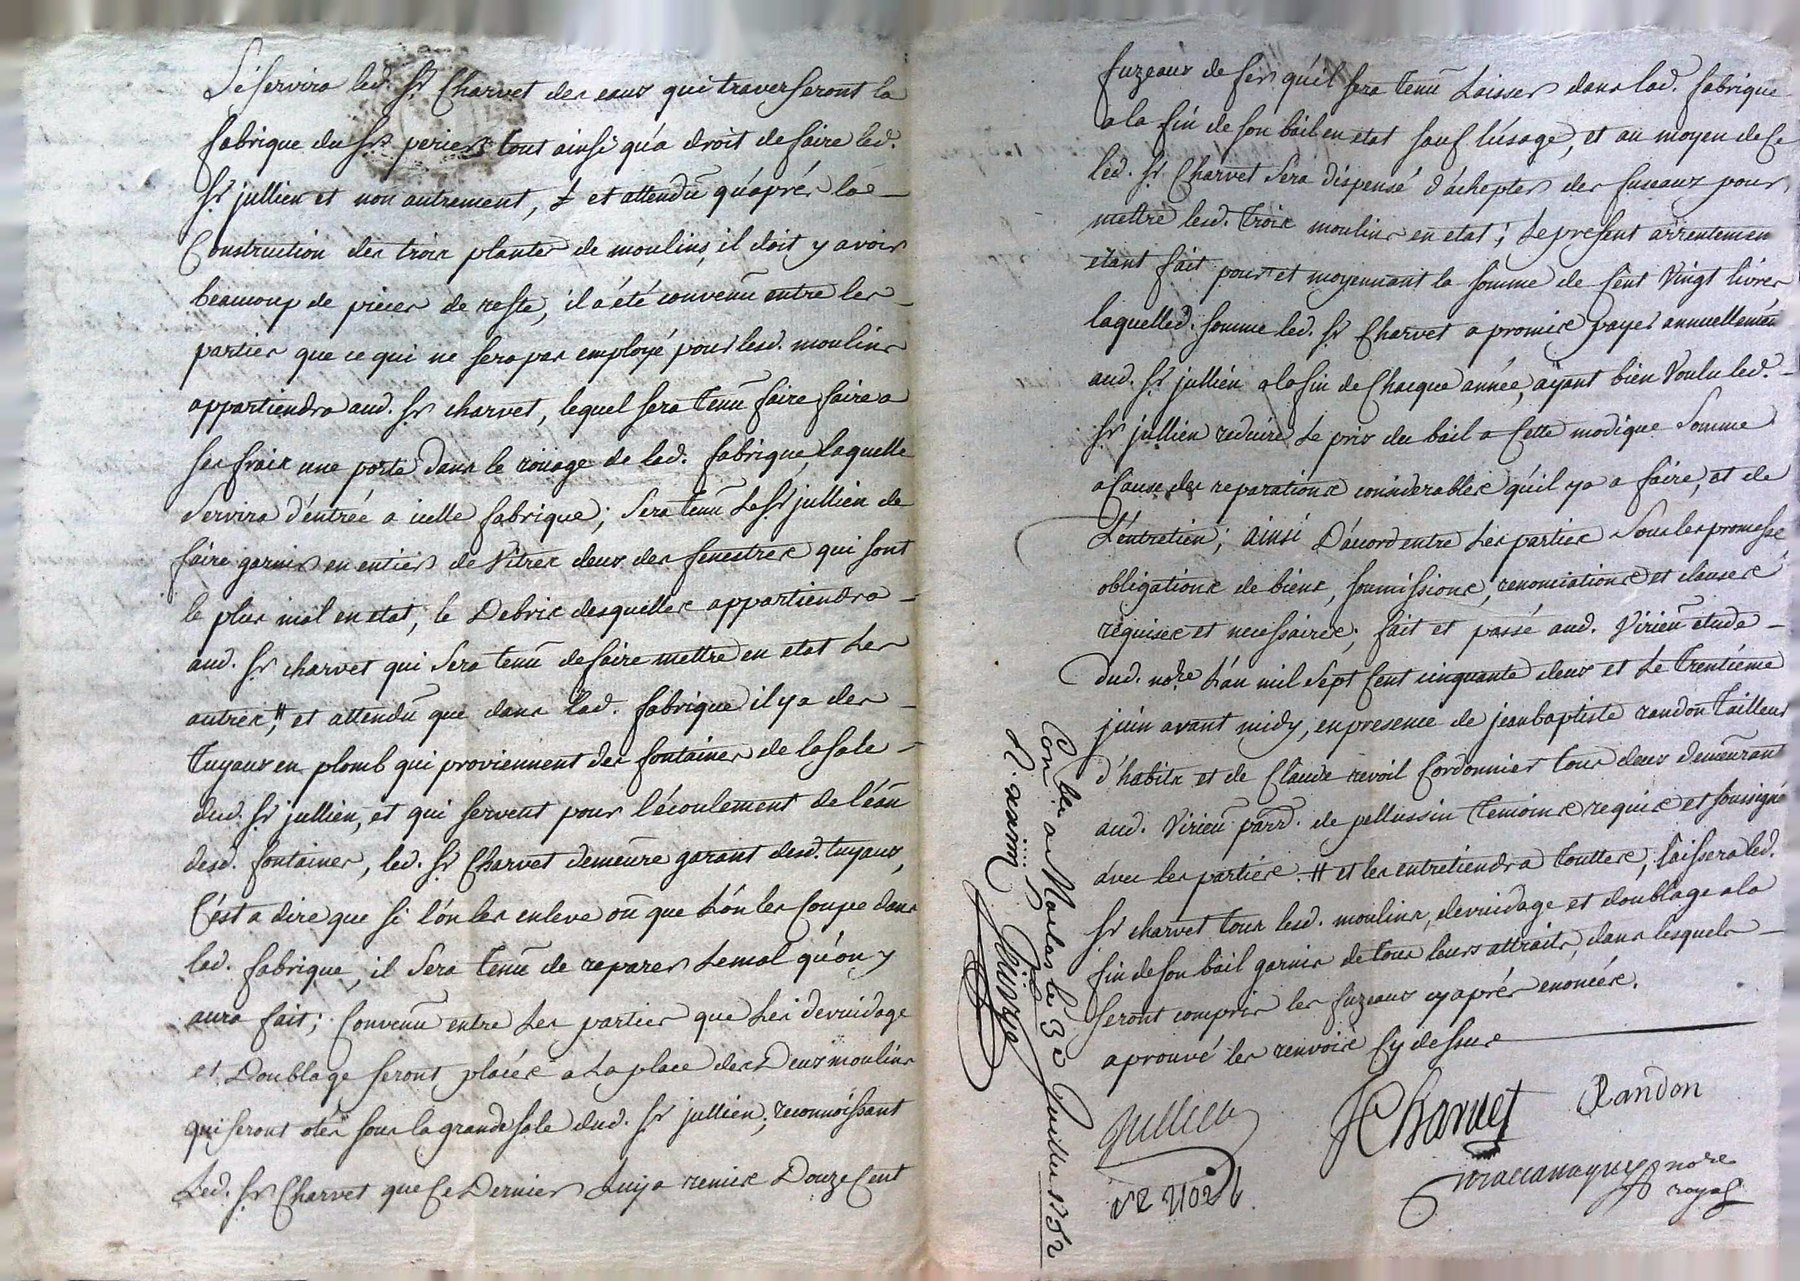 Se servira led. Sr Charvet des eaux qui traverseront la
fabrique du Sr perier tout ainsi qu'a droit de faire led.
Sr jullien et non autrement, et attendu qu'aprés la
Construction des trois plantes de moulins, il doit y avoir
beaucoup de pieces de reste, il a été convenu entre les
parties que ce qui ne sera pas employé pour lesd. moulins
appartiendra aud. Sr charvet, lequel sera tenu faire faire a
ses fraix une porte dans le roüage de lad. fabrique, laquelle
servira d'entrée a icelle fabrique; sera tenu le Sr jullien de
faire garnir en entier de Vitres deux des fenestres qui sont
le plus mal en etat, le Debris desquelles appartiendra
aud. Sr charvet qui sera tenu de faire mettre en etat Les
autres, # et attendu que dans lad. fabrique il y a des
Tuyaux en plomb qui proviennent des fontaines de la sale
dud. Sr jullien, et qui servent pour l'écoulement de l'éau
desd. fontaines, led. Sr Charvet demeure garant desd. tuyaux,
C'est a dire que si l'ón les enleve ou que L'ón les Coupe dans
lad. fabrique, il sera tenu de reparer Le mal qu'ón y
aura fait; Convenu entre Les parties que Les devuidage
et Doublage seront placés a La place des Deux moulins
qui seront otés sous la grande sale dud. Sr jullien; reconnoissant
Led. Sr Charvet que Ce Dernier Luy a remis Douze Cent
fuzeaux de fer qu'il sera tenu Laisser dans lad. fabrique
a la fin de son bail en etat sauf l'úsage, et au moyen de Ce
led. Sr Charvet sera dispensé d'áchepter des fuseaux pour
mettre lesd. trois moulins en etat; Le present arrentemen
etant fait pour et moyennant la somme de Cent Vingt livres
laquelled. somme led. Sr Charvet a promis payer annuellemen
aud. Sr jullien a la fin de Chaque année, ayant bien Voulu led.
Sr jullien reduire Le prix du bail a Cette modique somme
a Cause des reparations considerables qu'il y a a faire, et de
L'éntretien; ainsi D'áccord entre Les parties sous les promesse
obligations de biens, soumissions, renonciations et clauses
requises et necessaires; fait et passé aud. Virieu etude
dud. nore L'án mil sept Cent cinquante deux et Le Trentieme
juin avant midy, en presence de jean baptiste randon Tailleur
d'habits et de Claude revoil Cordonnier tous deux demeurant
aud. Virieu parr. de pellussin temoins requis et soussigné
avec les parties. # et les entretiendra touttes, laissera led.
Sr charvet tous lesd. moulins, devuidage et doublage a la
fin de son bail garnis de tous leurs attraits, dans lesquels
seront compris les fuzeaux cy aprés enoncés.
aprouvé les renvois Cy dessus
Jullien
JCharvet
Randon
revoil
nore
royal